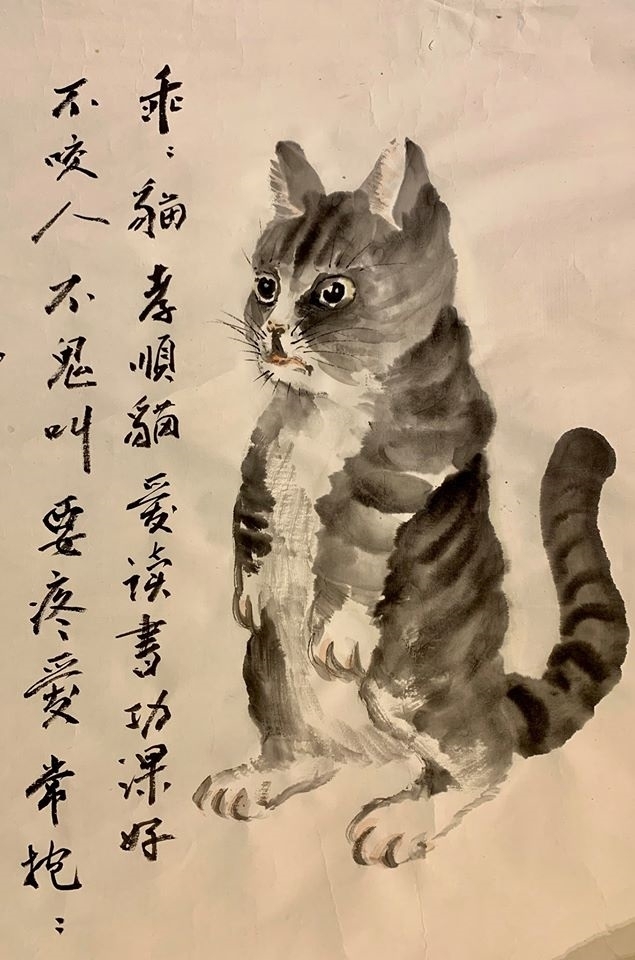 乖：貓孝順貓愛讀書功課好
不咬人不鬼叫要疼愛常抱：